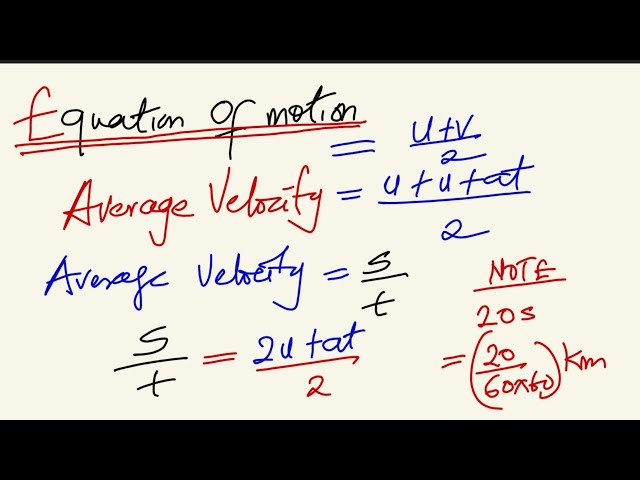 Equation of motion
= u+v/2
Average Velocity = u+u+at/2
Average Velocity = s/t
s/t = 2u+at/2
NOTE
20s
= (20/60x60) Km